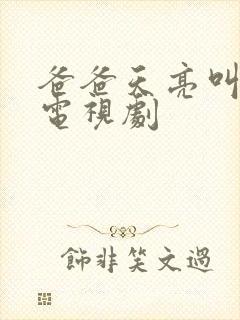 爸爸天亮叫
電視劇
飾非笑文過